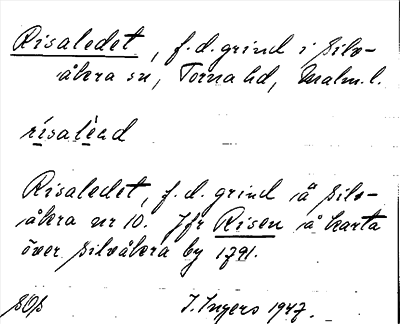 Risaledet, f.d. grind i Silv-
åkra sn, Torna hd, Malm. l.
risalead
Risaledet, f.d. grind å Silv-
åkra nr 10. Jfr Risen å karta
över Silvåkra by 1791.
I. Ingers 1947.